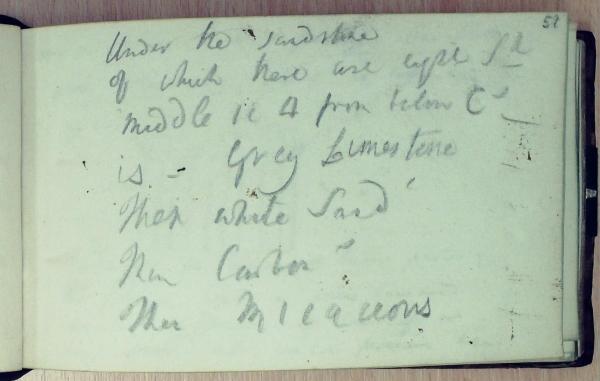 59
Under the sandstone
of which there are eight Sd
middle ie 4 from below Cs
is - Grey Limestone
Then white Sand
Then Carbon
Then Micaceous